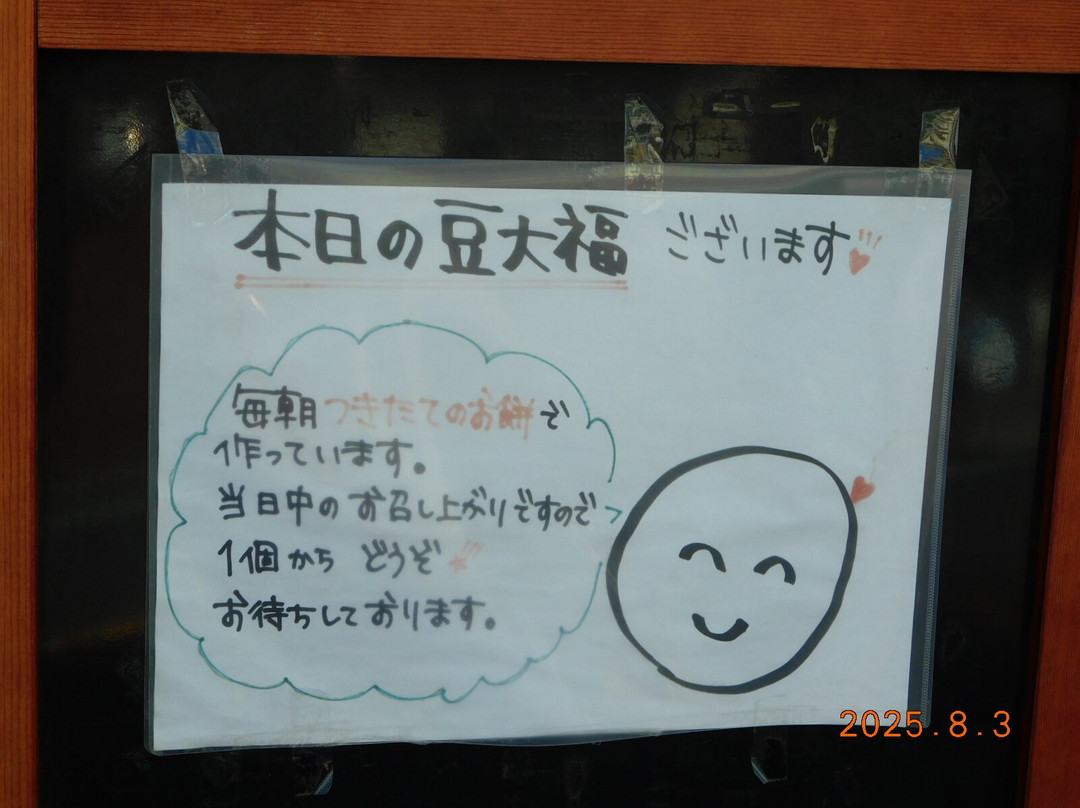 本日の豆大福 ございます!!!
毎朝つきたてのお餅で
作っています。
当日中のお召し上がりですので
1個から どうぞ!!!
お待ちしております。
2025.8.3